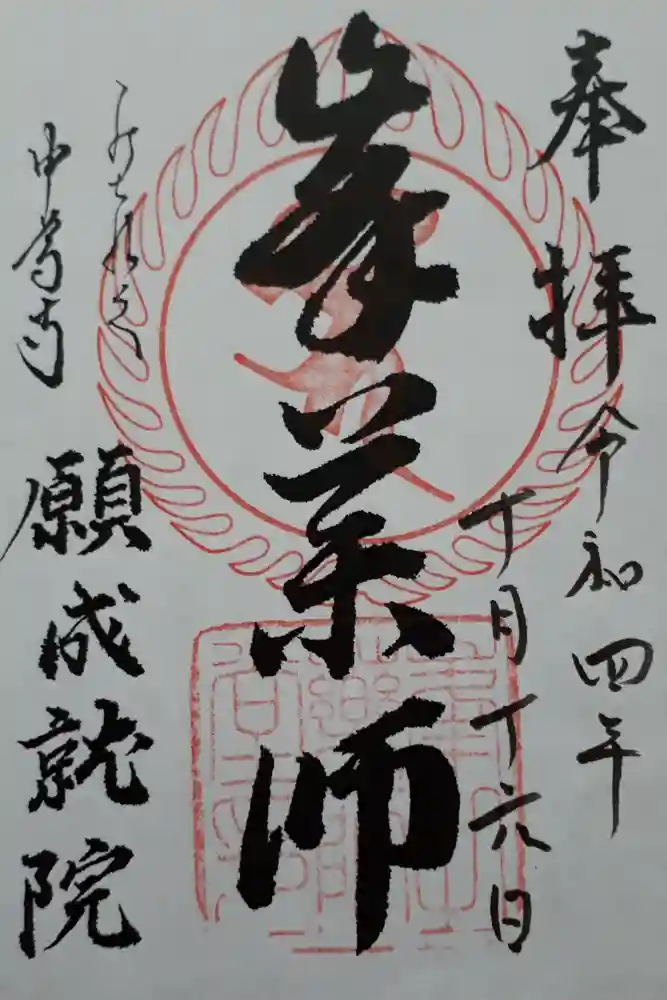 奉拝
令和四年
十月十六日
峯薬師
中尊寺
願成就院